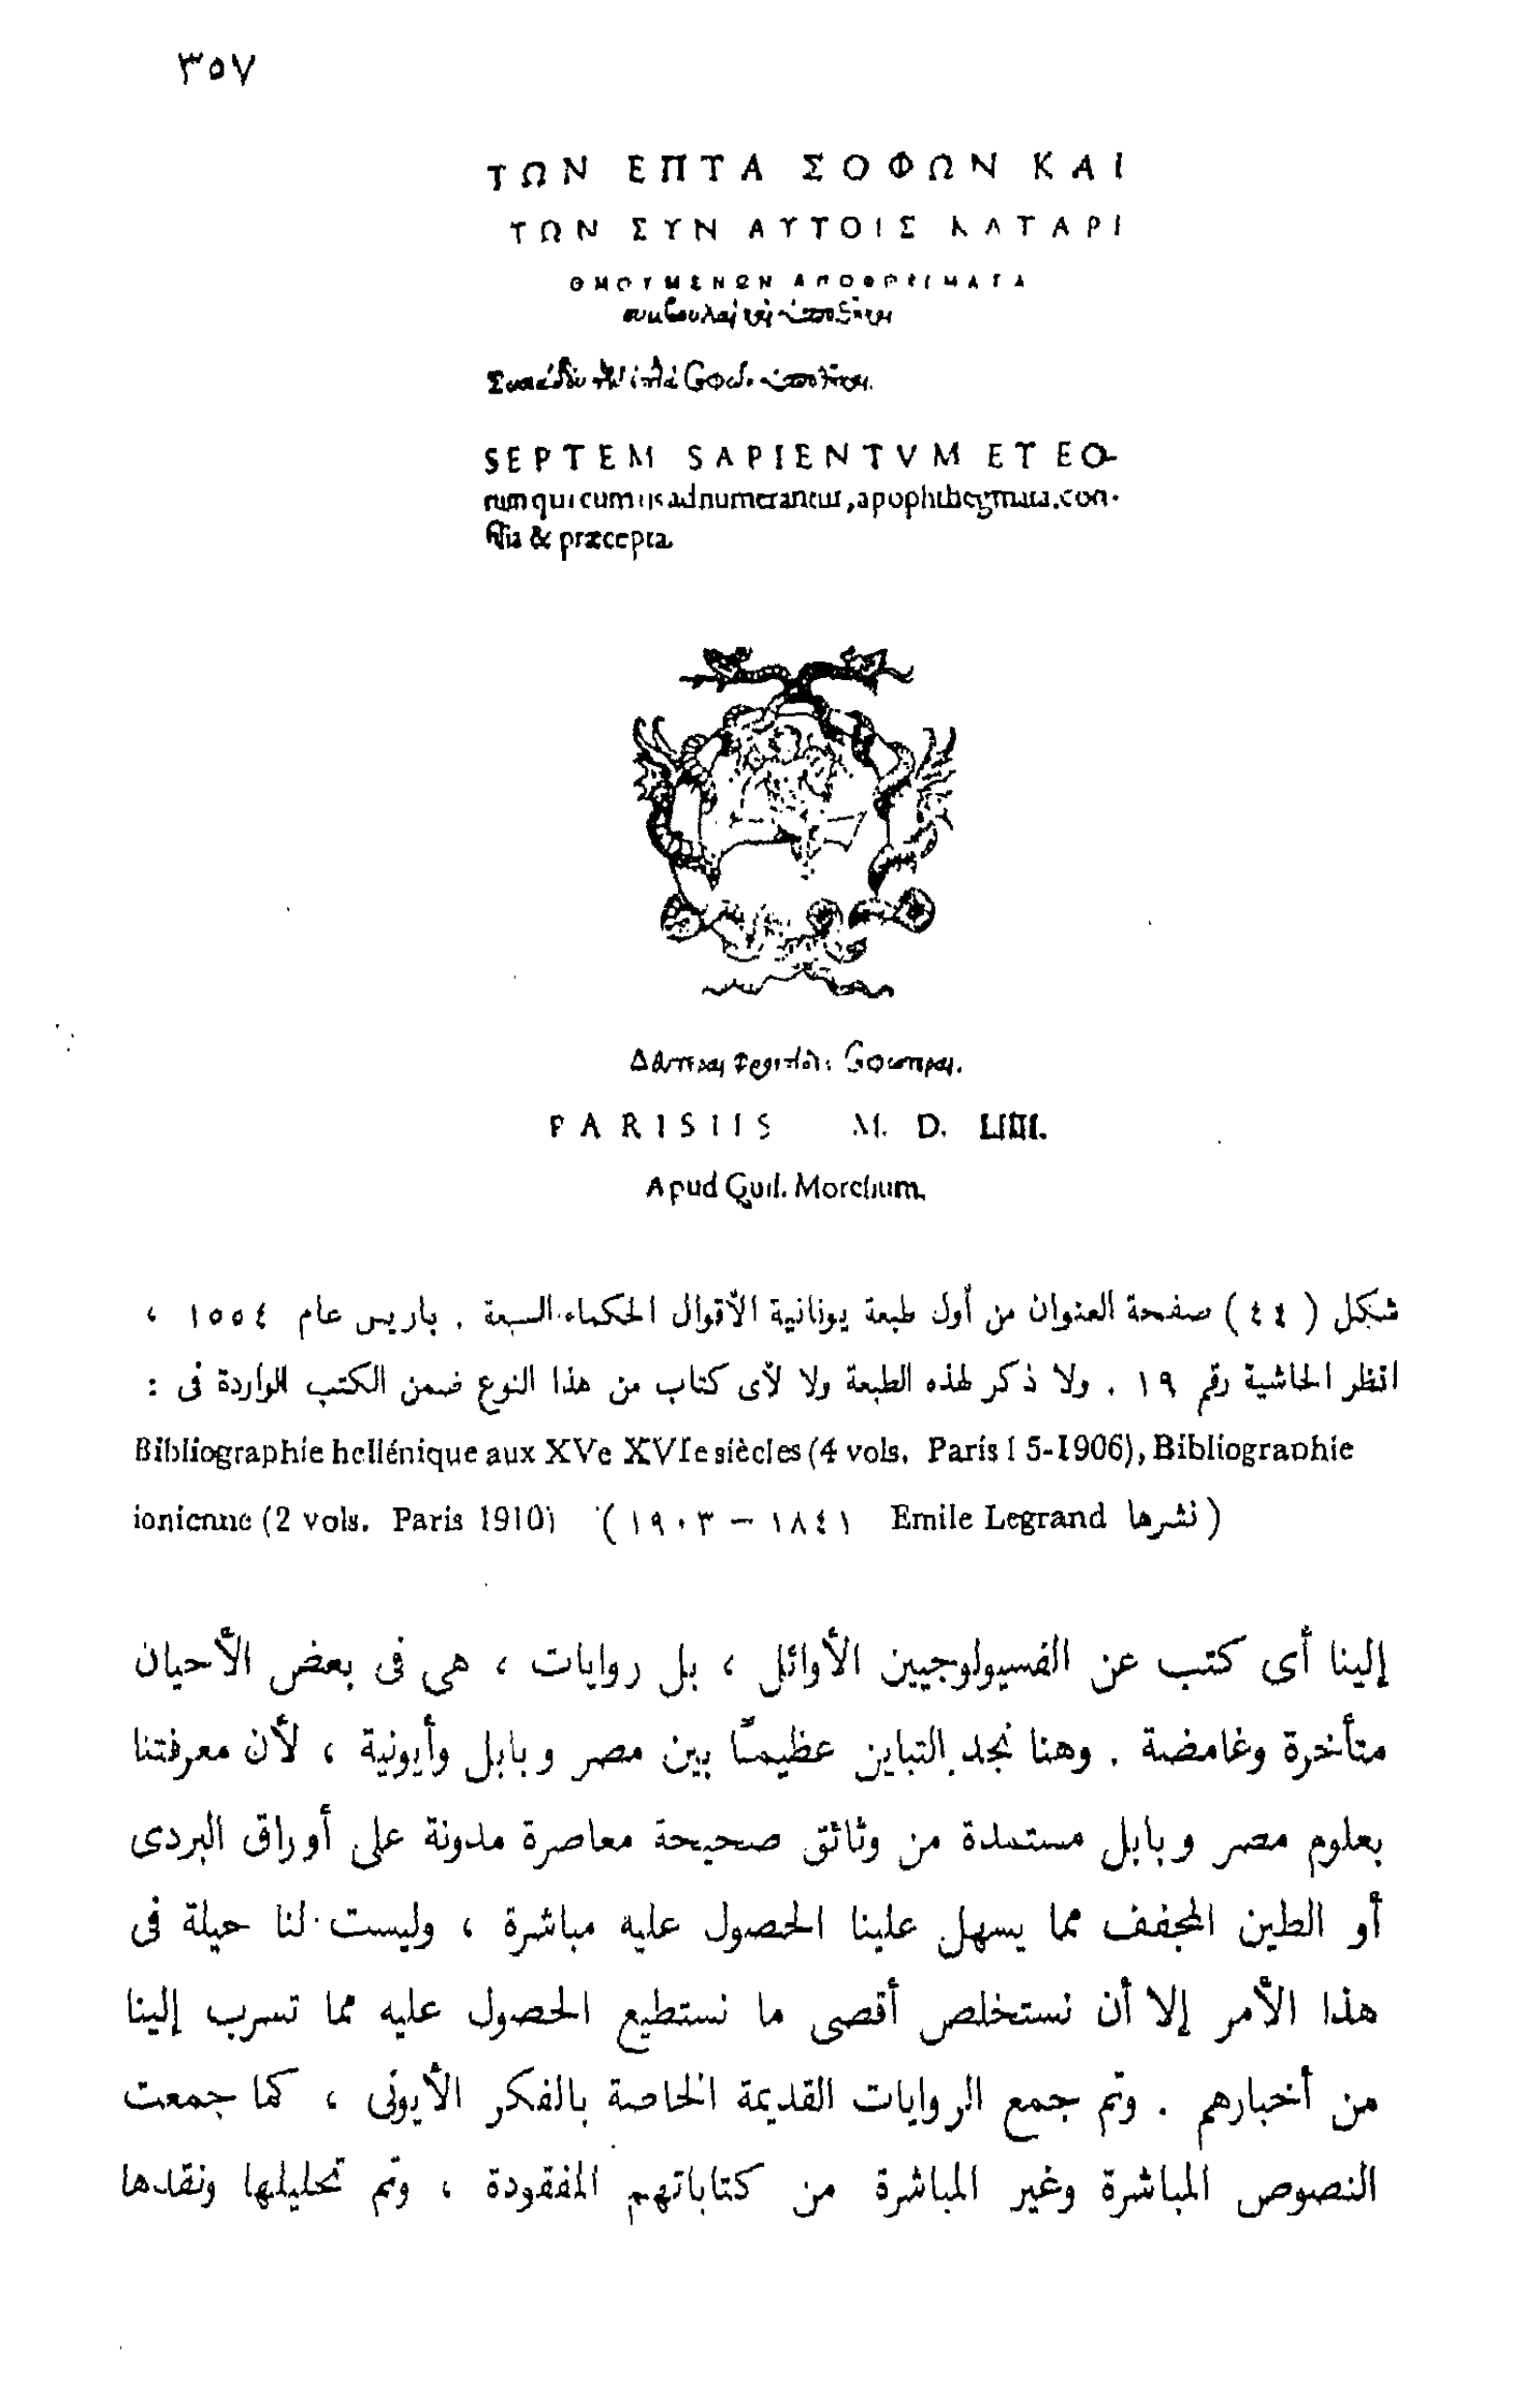 ٣٥٧
ΤΩΝ ΕΠΤΑ ΣΟΦΩΝ ΚΑΙ
ΤΩΝ ΣΥΝ ΑΥΤΟΙΣ ΚΑΤΑΡΙ
ΘΜΟΥΜΕΝΩΝ ΑΠΟΦΘΕΓΜΑΤΑ
SEPTEM SAPIENTVM ET EO-
rum qui cum iis adnumerantur, apophthegmata, con-
silia & præcepta.
PARISIIS M. D. LIIII.
Apud Guil. Morelium.
شكل ( ٤٤ ) صفحة العنوان من أول طبعة يونانية لأقوال الحكماء السبعة . باريس عام ١٥٥٤ ،
انظر الحاشية رقم ١٩ . ولا ذكر لهذه الطبعة ولا لأى كتاب من هذا النوع ضمن الكتب الواردة فى :
Bibliographie hellénique aux XVe XVIe siècles (4 vols. Paris 1 5-1906), Bibliographie
ionienne (2 vols. Paris 1910) (نشرها Emile Legrand ١٨٤١ – ١٩٠٣ )
إلينا أى كتب عن الفسيولوجيين الأوائل ، بل روايات ، هى فى بعض الأحيان
متأخرة وغامضة . وهنا نجد التباين عظيماً بين مصر وبابل وأيونية ، لأن معرفتنا
بعلوم مصر وبابل مستمدة من وثائق صحيحة معاصرة مدونة على أوراق البردى
أو الطين المجفف مما يسهل علينا الحصول عليه مباشرة ، وليست لنا حيلة فى
هذا الأمر إلا أن نستخلص أقصى ما نستطيع الحصول عليه مما تسرب إلينا
من أخبارهم . وتم جمع الروايات القديمة الخاصة بالفكر الأيونى ، كما جمعت
النصوص المباشرة وغير المباشرة من كتاباتهم المفقودة ، وتم تحليلها ونقدها